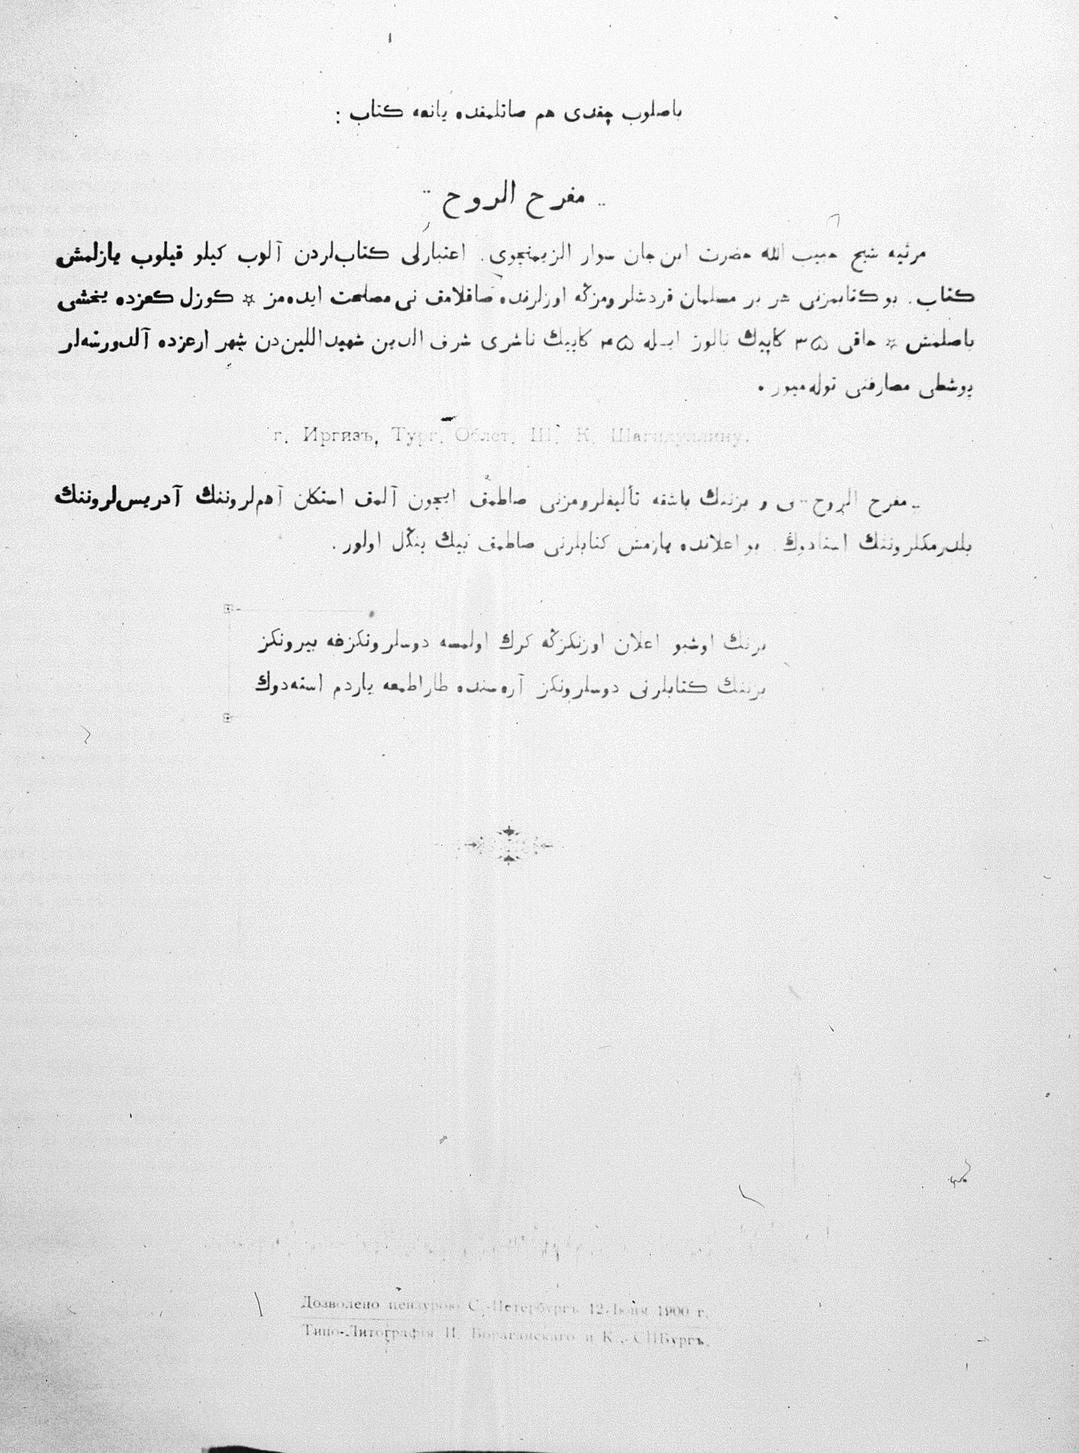 باصلوب چقدى هم صاتلمقده يانغه كتاب :
„ مفرح الروح “
مرثيه شيخ حبيب الله حضرت ابن جان سوار الزيمنچوى. اعتبارلى كتاب‌لردن آلوب كيلو قيلوب يازلمش
كتاب. بو كتابمزنى هر بر مسلمان قردشلرومزڭه اوزلرنده صاقلامق نى مصلحت ايده‌مز ☆ كوزل كعزده يخشى
باصلمش ☆ حاقى ۳۵ كاپيك يالوز ايله ۴۵ كاپيك ناشرى شرف الدين شهيداللين‌دن شهر ارعزده آلدورتنه‌لر
پوشطى مصارفنى توله‌ميور .
г. Иргизъ, Тург. Облст. Ш. К. Шагидуллину.
„مفرح الروح“ى و بزننڭ باشقه تأليفلرومزنى صاطمق ايچون آلمق استكان آهم‌لروننڭ آدريس‌لروننڭ
بلدرمكلروننڭ استادوڭ. بو اعلانده يازمش كتابلرنى صاطمق بيك ينڭل اولور .
بزنڭ اوشبو اعلان اوزنكزڭه كرك اولمسه دوسلرونكزغه بيرونكز
بزننڭ كتابلرنى دوسلرونكز آره‌سنده طاراطمغه ياردم استه‌دوڭ
Дозволено цензурою С.-Петербургъ 12 Іюня 1900 г.
Типо-Литографія И. Бораганскаго и К°. СПБургъ.